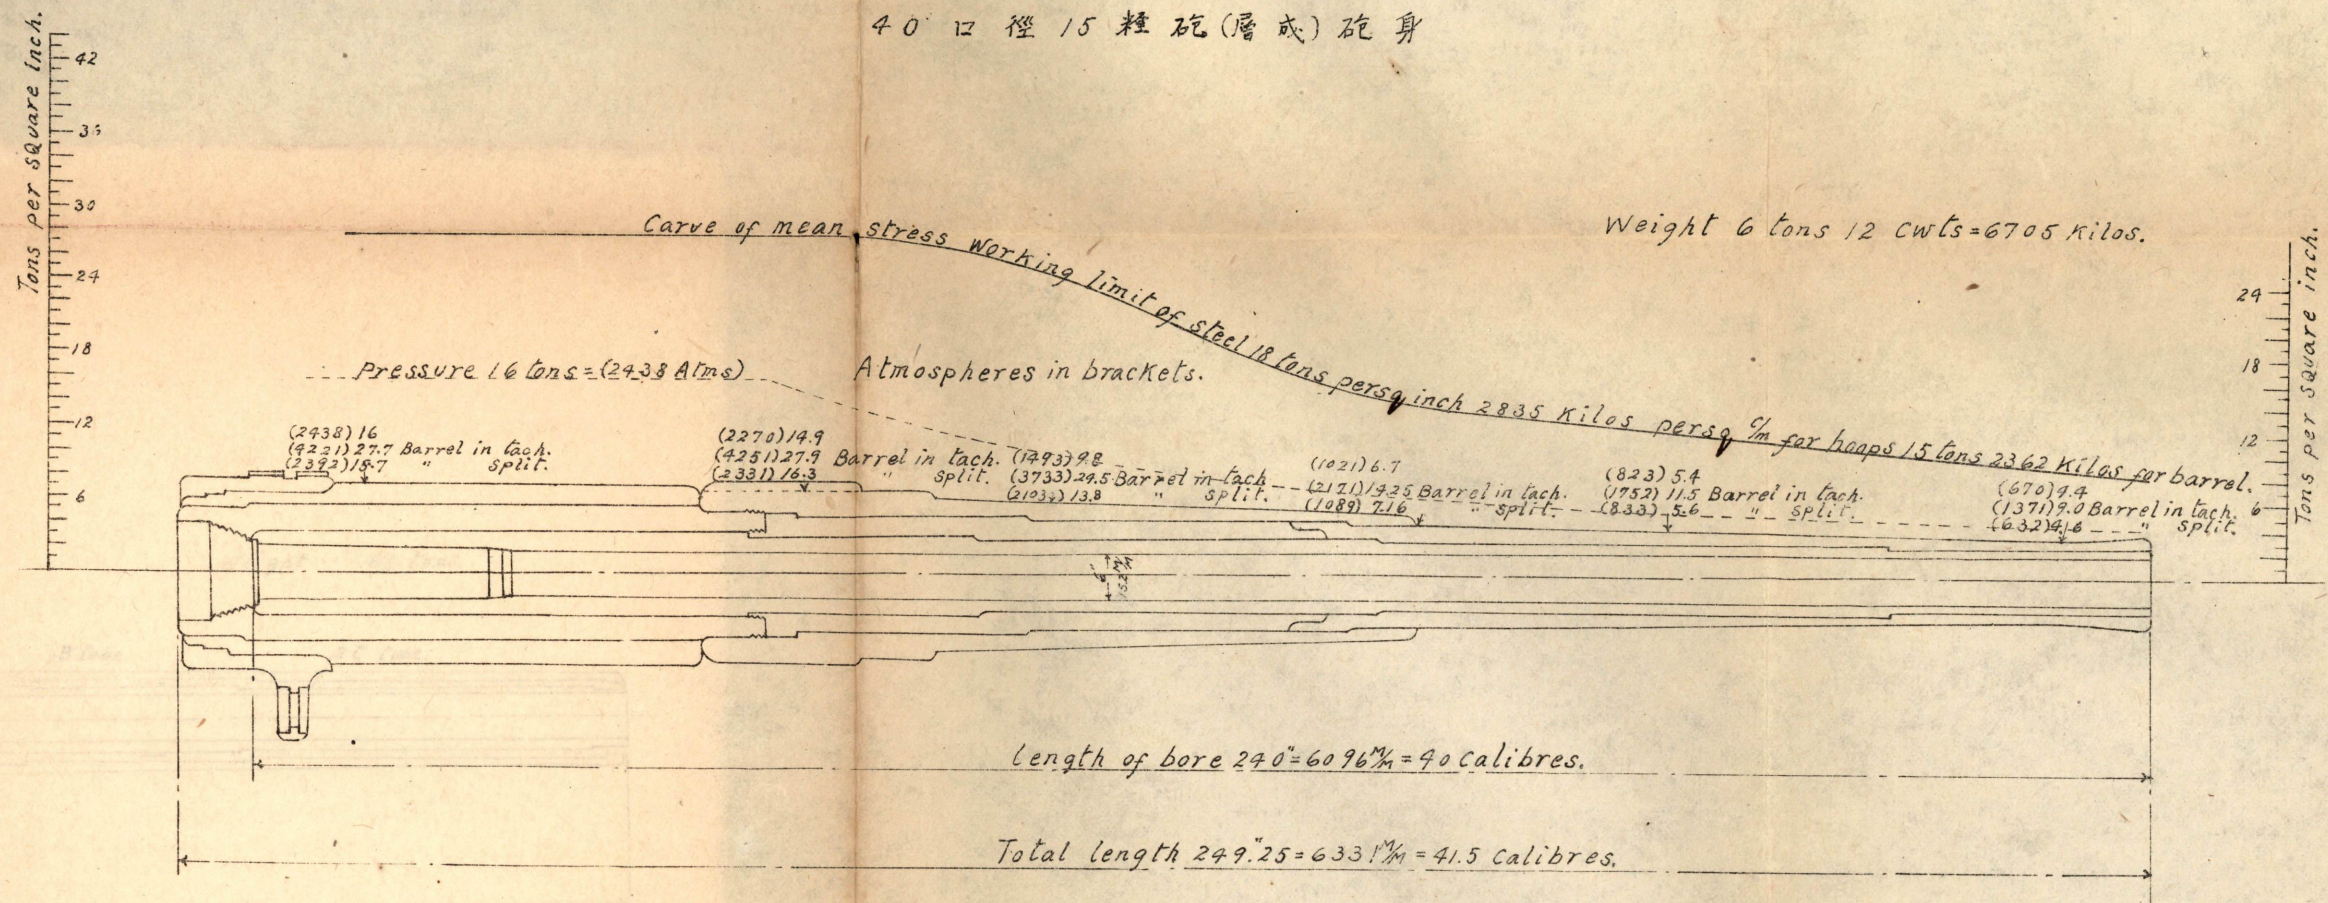 40口徑15糎砲(層成)砲身
Tons per square inch.
42
36
30
24
18
12
6
Carve of mean stress Working limit of steel 18 tons persq inch 2835 Kilos persq c/m for hoops 15 tons 2362 Kilos for barrel.
Weight 6 tons 12 cwts=6705 Kilos.
Pressure 16 tons=(2438 Atms)
Atmospheres in brackets.
(2438)16
(4221)27.7 Barrel in tach.
(2392)15.7 " split.
(2270)14.9
(4251)27.9 Barrel in tach.
(2331)16.3 " split.
(1493)9.8
(3733)24.5 Barrel in tach
(2103) 13.8 " split.
(1021)6.7
(2171)14.25 Barrel in tach.
(1089) 7.16 " split.
(823)5.4
(1752)11.5 Barrel in tach.
(833) 5.6 " split.
(670)4.4
(1371)9.0 Barrel in tach.
(632)4.16 " split.
Tons per square inch.
24
18
12
6
6"
152 M/M
length of bore 240"=6096 M/M=40 Calibres.
Total length 249."25=6331 M/M=41.5 Calibres.